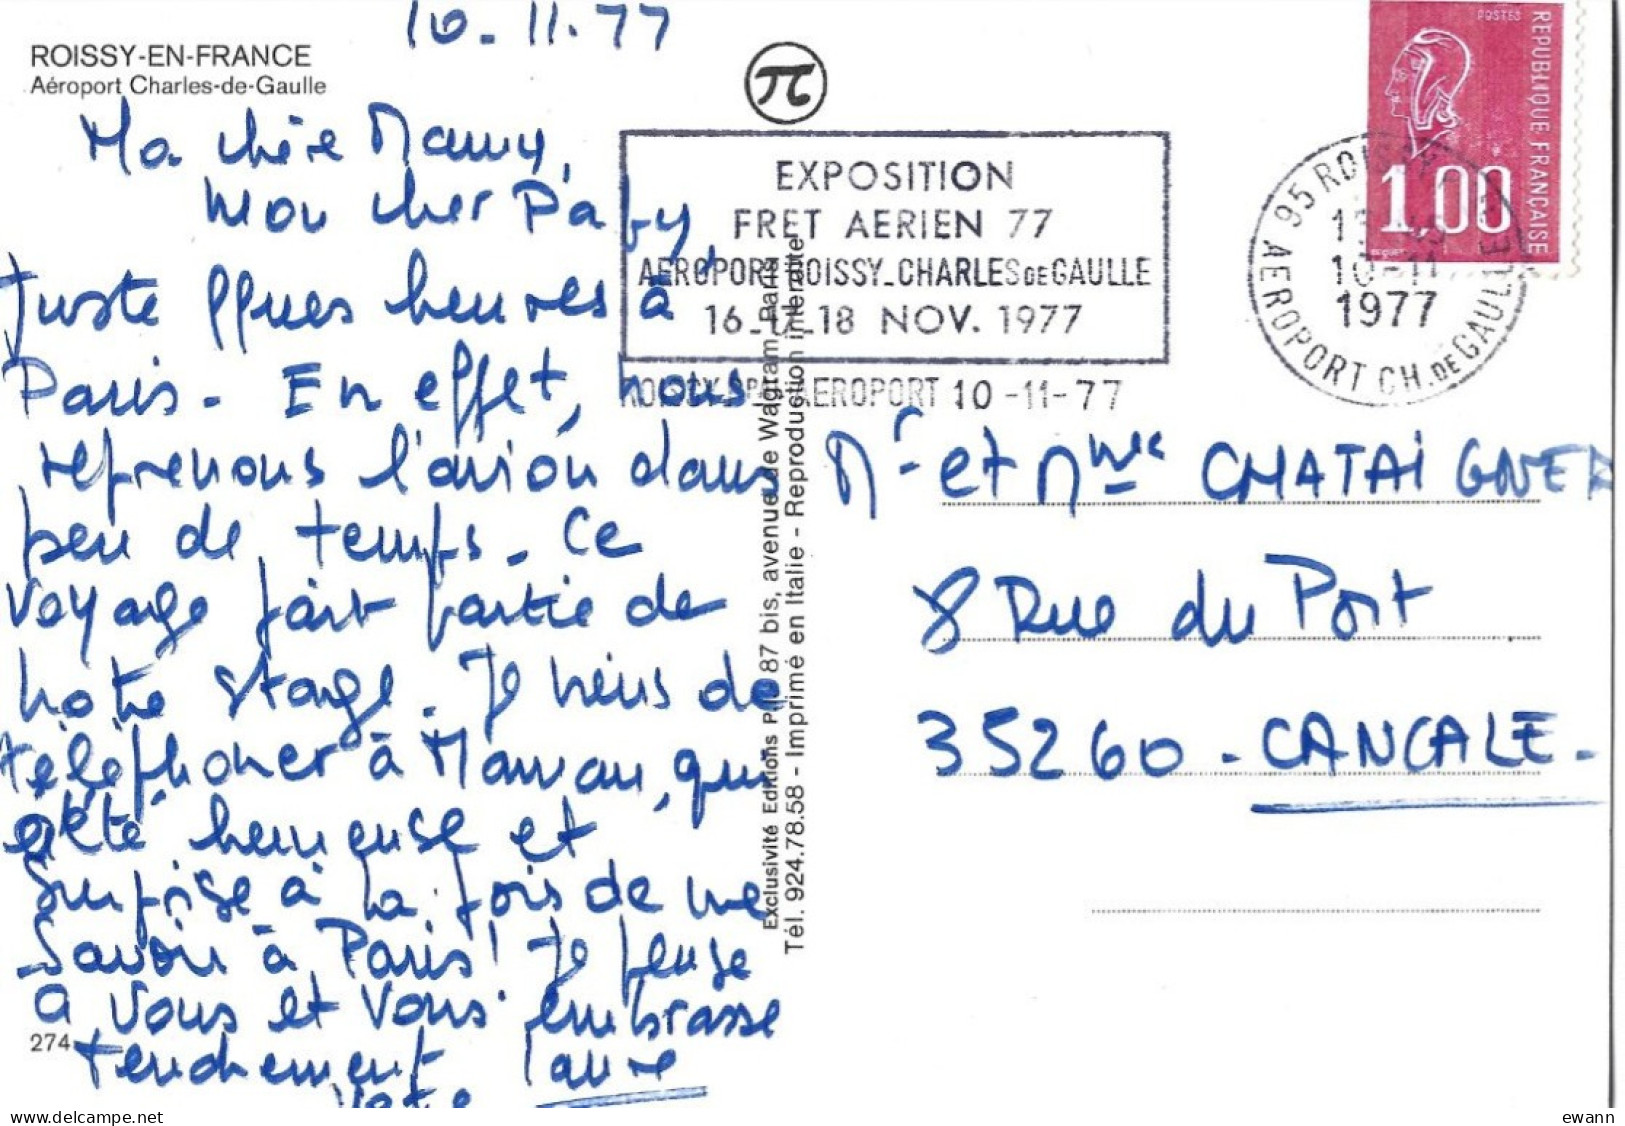 10-11-77
ROISSY-EN-FRANCE
Aéroport Charles-de-Gaulle
Ma chère Mamy,
Mon cher Papy,
Juste qques heures à
Paris - En effet, nous
reprenons l'avion dans
peu de temps - Ce
Voyage fait partie de
notre stage. Je viens de
téléphoner à Maman, qui
a été heureuse et
surprise à la fois de me
savoir à Paris! Je pense
à vous et vous embrasse
tendrement
Votre Laure
274
EXPOSITION
FRET AERIEN 77
AEROPORT ROISSY_CHARLES DE GAULLE
16_17_18 NOV. 1977
ROISSY PAL AEROPORT 10-11-77
95 ROISSY
AEROPORT CH. DE GAULLE
10-11
1977
POSTES
REPUBLIQUE FRANÇAISE
1,00
Exclusivité Editions P.I. 87 bis, avenue de Wagram, Paris
Tél. 924.78.58 - Imprimé en Italie - Reproduction interdite
Mr et Mme CHATAIGNER
8 Rue du Port
35260 - CANCALE -
ewann